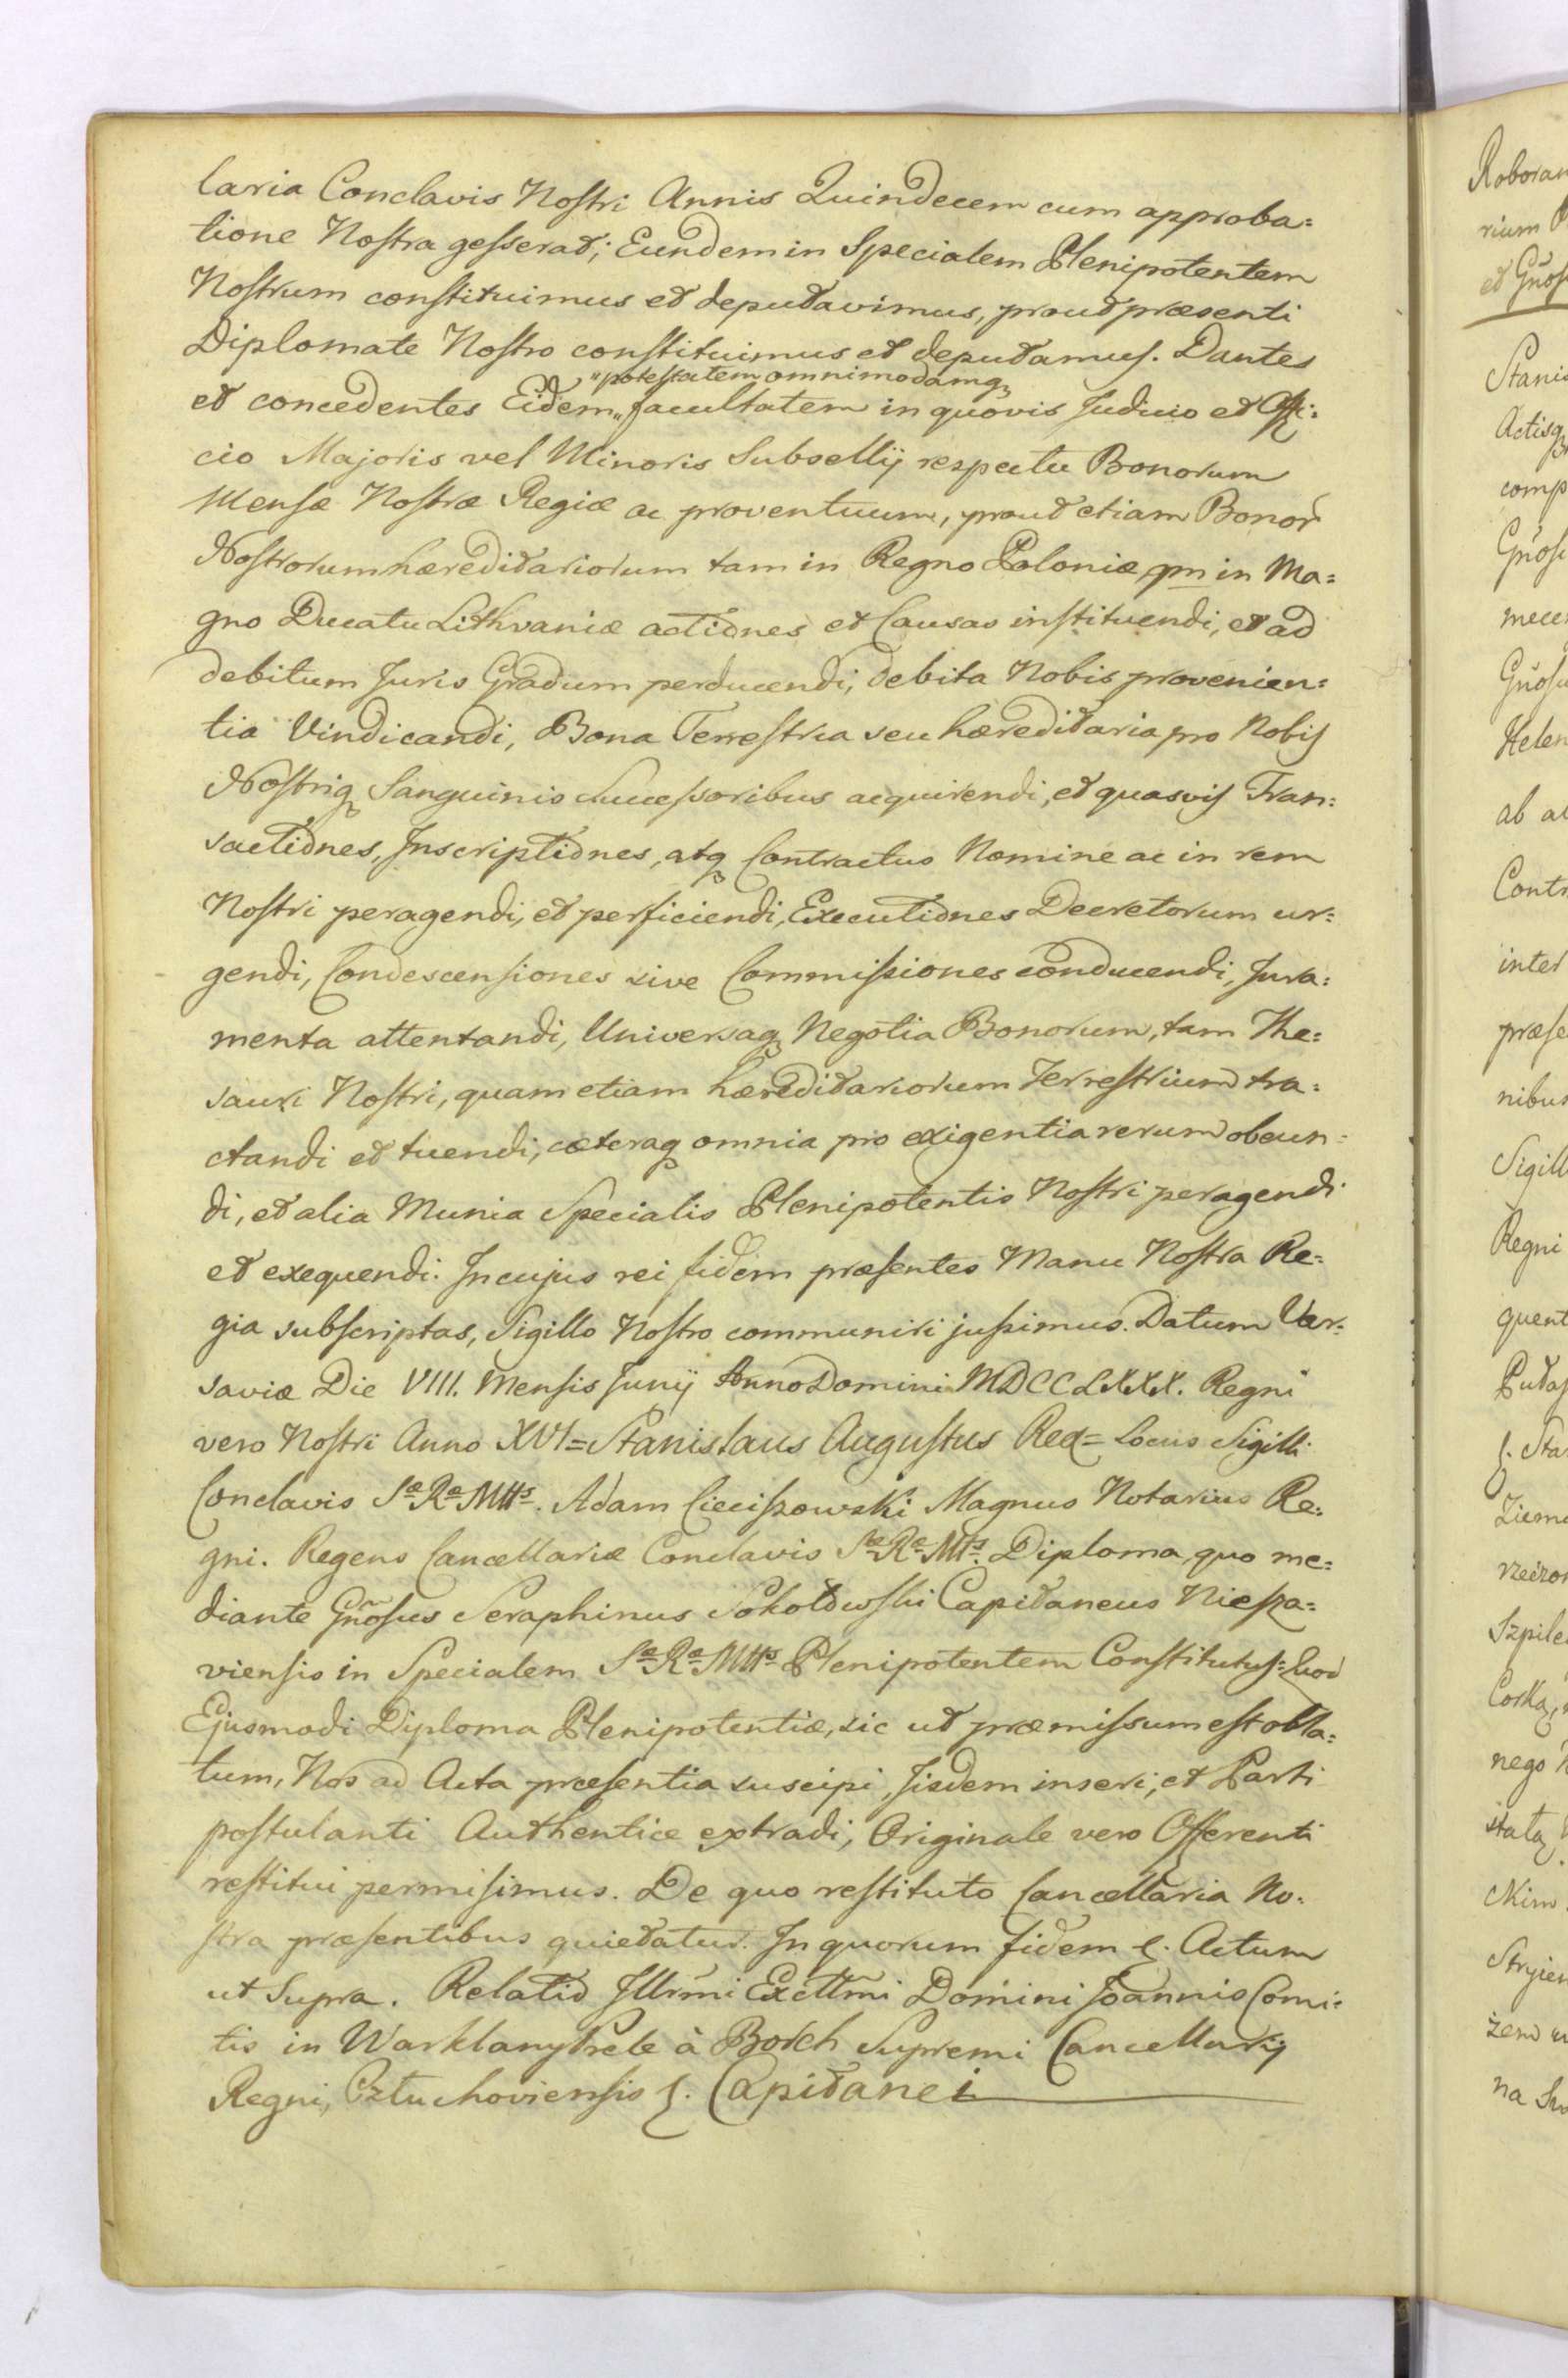 laria Conclavis Nostri Annis Quindecem cum approba=
tione Nostra gesserat; Eundem in Specialem Plenipotentem
Nostrum constituimus et deputavimus, prout præsenti
Diplomate Nostro constituimus et deputamus. Dantes
"potestatem omnimodamq3
et concedentes Eidem„ facultatem in quovis Judicio et Offi=
cio Majoris vel Minoris Subsellij respectu Bonorum
Mensæ Nostræ Regiæ ac proventuum, prout etiam Bonor
Nostrorum hæreditariorum tam in Regno Poloniæ qm in Ma=
gno Ducatu Lithvaniæ actiones et Causas instituendi, et ad
debitum Juris Gradum perducendi, debita Nobis provenien=
tia Vindicandi, Bona Terrestria seu hæreditaria pro Nobis
Nostriq3 Sanguinis Successoribus acquirendi, et quasvis Tran=
sactiones, Inscriptiones, atq3 Contractus Nomine ac in rem
Nostri peragendi, et perficiendi, Executiones Decretorum ur=
gendi, Condescensiones sive Commissiones conducendi, Jura=
menta attentandi, Universaq3 Negotia Bonorum, tam The=
sauri Nostri, quam etiam hæreditariorum Terrestrium tra=
ctandi et tuendi, cæteraq3 omnia pro exigentia rerum obeun=
di, et alia Munia Specialis Plenipotentis Nostri peragendi
et exequendi. In cujus rei fidem præsentes Manu Nostra Re=
gia subscriptas, Sigillo Nostro communiri jussimus. Datum Var=
saviæ Die VIII. Mensis Junij Anno Domini MDCCLXXX. Regni
vero Nostri Anno XVI = Stanislaus Augustus Rex = Locus Sigilli
Conclavis Sæ Ræ Mttis. Adam Cieciszowski Magnus Notarius Re=
gni. Regens Cancellariæ Conclavis Sæ Ræ Mtts. Diploma quo me=
diante Gnosus Seraphinus Sokołowski Capitaneus Niesza=
viensis in Specialem Sæ Ræ Mttis Plenipotentem Constitutus = Quod
Ejusmodi Diploma Plenipotentiæ, sic ut præmissum est obla=
tum, Nos ad Acta præsentia suscipi, Iisdem inseri, et Parti
postulanti Authentice extradi, Originale vero Offerenti
restitui permisimus. De quo restituto Cancellaria No=
stra præsentibus quietatur. In quorum fidem &. Actum
ut Supra. Relatio Illrmi Excttmi Domini Joannis Comi=
tis in Warklany Prele à Borch Supremi Cancellarij
Regni, Człuchoviensis &. Capitanei
Roboran
rium
et Gnos
Stanis
Actisq3
comp
Gnosu
mecen
Gnosu
Helen
ab ac
Contr
inter
præse
nibus
Sigill
Regni
quent
Putas
&. Sta
Ziems
Szpile
Corką,
nego
statą,
ckim
Stryien
żem
na